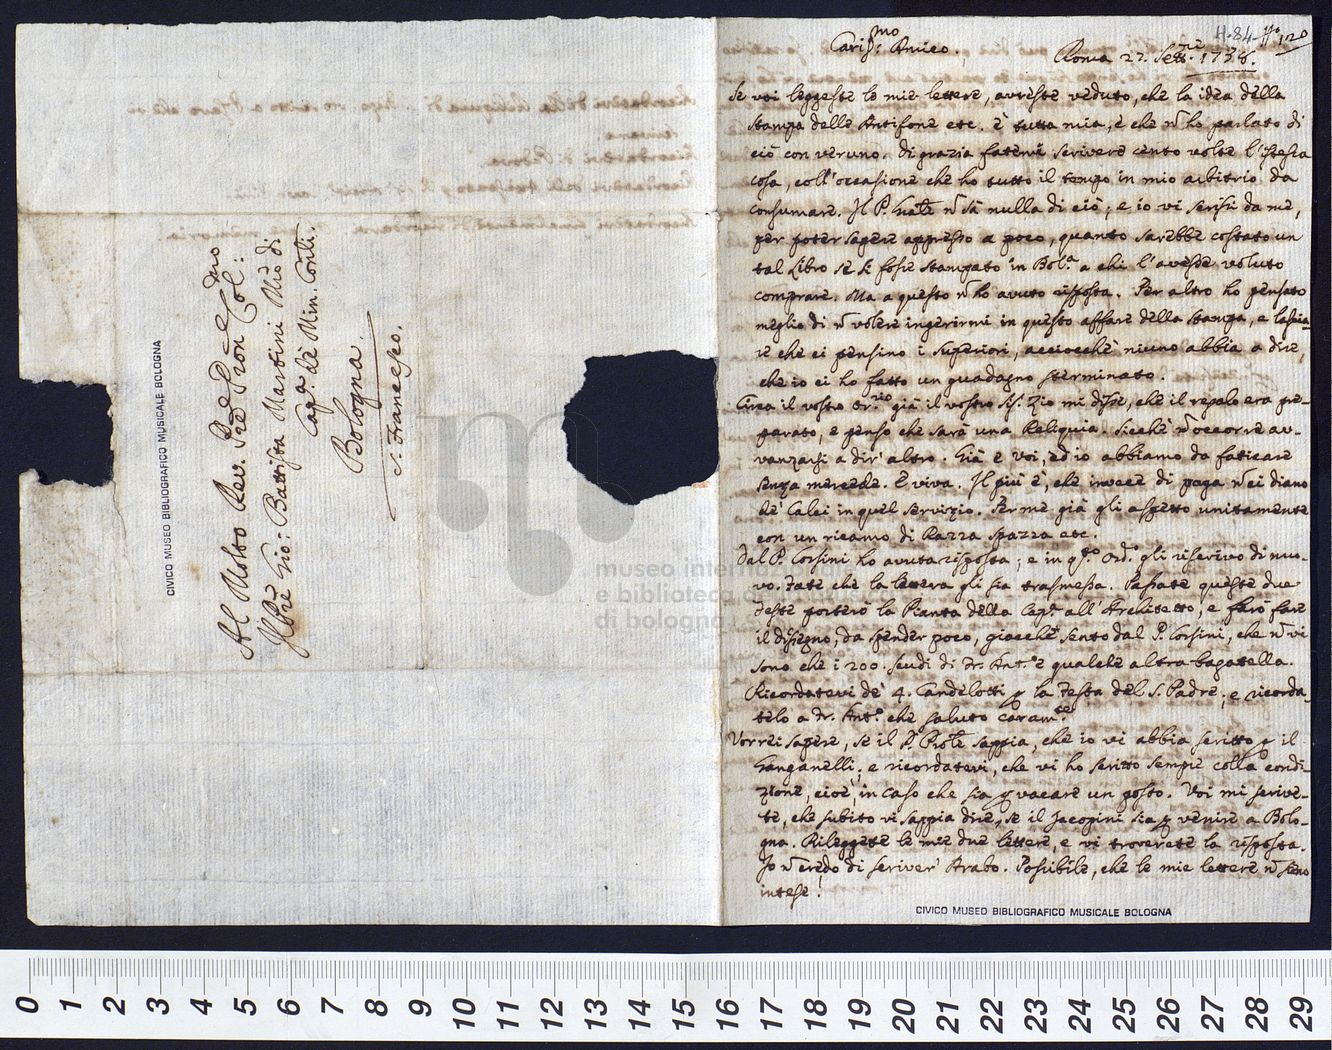 Al Molto Rev. Pre e Pron Col:mo
Il Pre Gio: Battista Martini Mro di
Cap. de Min. Conli.
Bologna.
S. Francesco.
CIVICO MUSEO BIBLIOGRAFICO MUSICALE BOLOGNA
museo internazionale
e biblioteca della musica
di bologna
H.84. 120
Carismo Amico. Roma 27. Settre 1738.
Se voi leggeste le mie lettere, avreste veduto, che la idea della
stampa delle Antifone etc. è tutta mia, e che ñ ho parlato di
ciò con veruno. Di grazia fatemi scrivere cento volte l'istessa
cosa, coll'occasione che ho tutto il tempo in mio arbitrio da
consumare. Il P. Gnale ñ sà nulla di ciò; e io vi scrissi da me,
per poter sapere appresso a poco, quanto sarebbe costato un
tal Libro se si fosse stampato in Bol.a a chi l'avesse voluto
comprare. Ma a questo ñ ho avuto risposta. Per altro ho pensato
meglio di ñ volere ingerirmi in questo affare della stampa, e lascia-
re che ci pensino i Superiori, acciocchè niuno abbia a dire,
che io ci ho fatto un guadagno sterminato.
Circa il vostro Or.rio già il vostro Sig. Zio mi disse, che il regalo era pre-
parato, e penso che sarà una Reliquia. Sicchè ñ occorre av-
vanzarsi a dir' altro. Già e voi, ed io abbiamo da faticare
senza mercede. E viva. Il più è, che invece di paga ñ ci diano
de' Calci in quel servizio. Per me già gli aspetto unitamente
con un ricamo di Razza spazza etc.
Dal P. Corsini ho avuta risposta; e in q.sto Ord.o gli riscrivo di nuo-
vo. Fate che la lettera gli sia trasmessa. Passate queste due
feste porterò la Pianta della Cap.a all'Architetto, e farò fare
il disegno, da spender poco, giacchè sento dal P. Corsini, che ñ vi
sono che i 200. scudi di Fr. Ant.o e qualche altra bagatella.
Ricordatevi de' 4. Candelotti p la Festa del S. Padre; e ricorda-
telo a Fr. Ant.o che saluto caram.te
Vorrei sapere, se il P. Prole sappia, che io vi abbia scritto p il
Ganganelli; e ricordatevi, che vi ho scritto sempre colla condi-
zione, cioè, in caso che sia p vacare un posto. Voi mi scrive-
te, che subito vi sappia dire, se il Jacopini sia p venire a Bolo-
gna. Rileggete le mie due lettere, e vi troverete la risposta.
Io ñ credo di scriver Arabo. Possibile, che le mie lettere ñ sieno
intese!
CIVICO MUSEO BIBLIOGRAFICO MUSICALE BOLOGNA
0 1 2 3 4 5 6 7 8 9 10 11 12 13 14 15 16 17 18 19 20 21 22 23 24 25 26 27 28 29